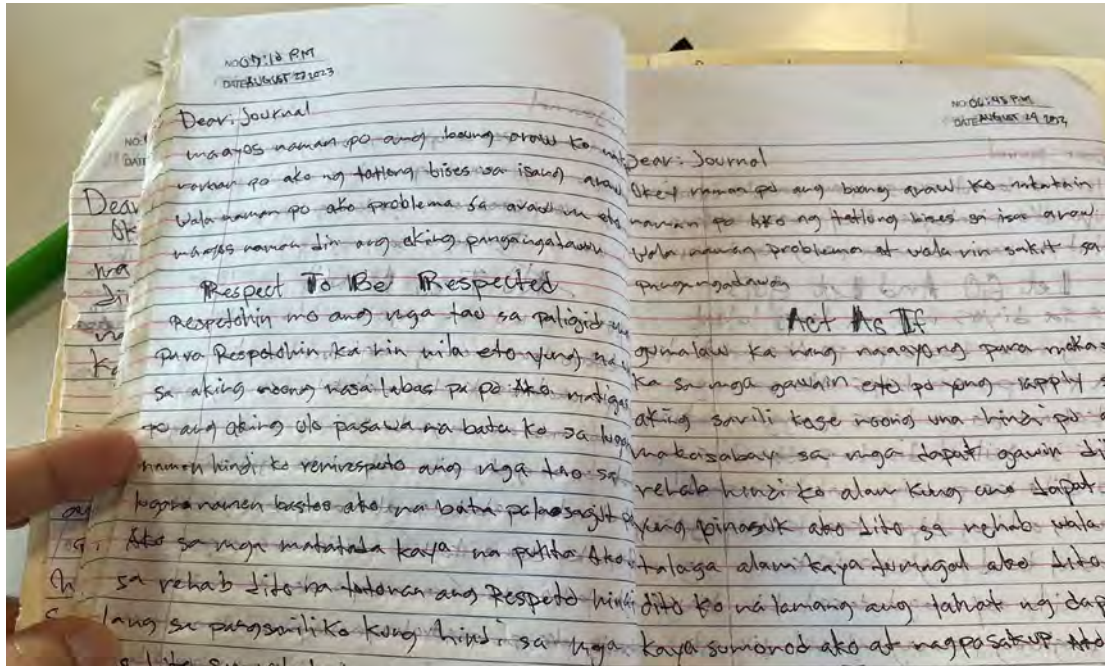 NO: 07:12 PM
DATE: AUGUST 27 2023
Dear: Journal
maayos naman po ang boung araw ko
po ako ng tatlong bises sa isang araw
Wala naman po ako problema sa araw na eto
maayos naman din ang aking pangangatawan
Respect To Be Respected
Respetohin mo ang mga tao sa paligid mo
para Respetohin ka rin nila eto yung na
sa aking noong nasa labas pa po Ako matigas
po ang aking olo pasawa na bata ko sa lugar
namen hindi ko renirespeto ang mga tao sa
lugara namen bastos ako na bata palasagut
Ako sa mga matatada kaya na putita Ako
sa rehab dito na totonan ang Respeto hindi
lang sa pangsariliko kung hindi sa mga
NO: 06:45 PM
DATE: AUGUST 29 2023
Dear: Journal
Okey naman po ang buong araw ko
naman po Ako ng tatlong bises sa isa araw
Wala naman problema at wala rin sakit sa
pangangatawan
Act As If
gumalaw ka nang naaayong para maka
ka sa mga gawain eto po yong iapply
aking sarili kase noong una hindi po
makaisabay sa mga dapat gawin
rehab hindi ko alam kung ano dapat
yung pinasuk ako dito sa rehab wala
talaga alam kaya tumagal ako dito
dito ko na lamang ang lahat ng
kaya sumonod ako at nagpasakup Ako
NO:
DATE
Dear
Ok